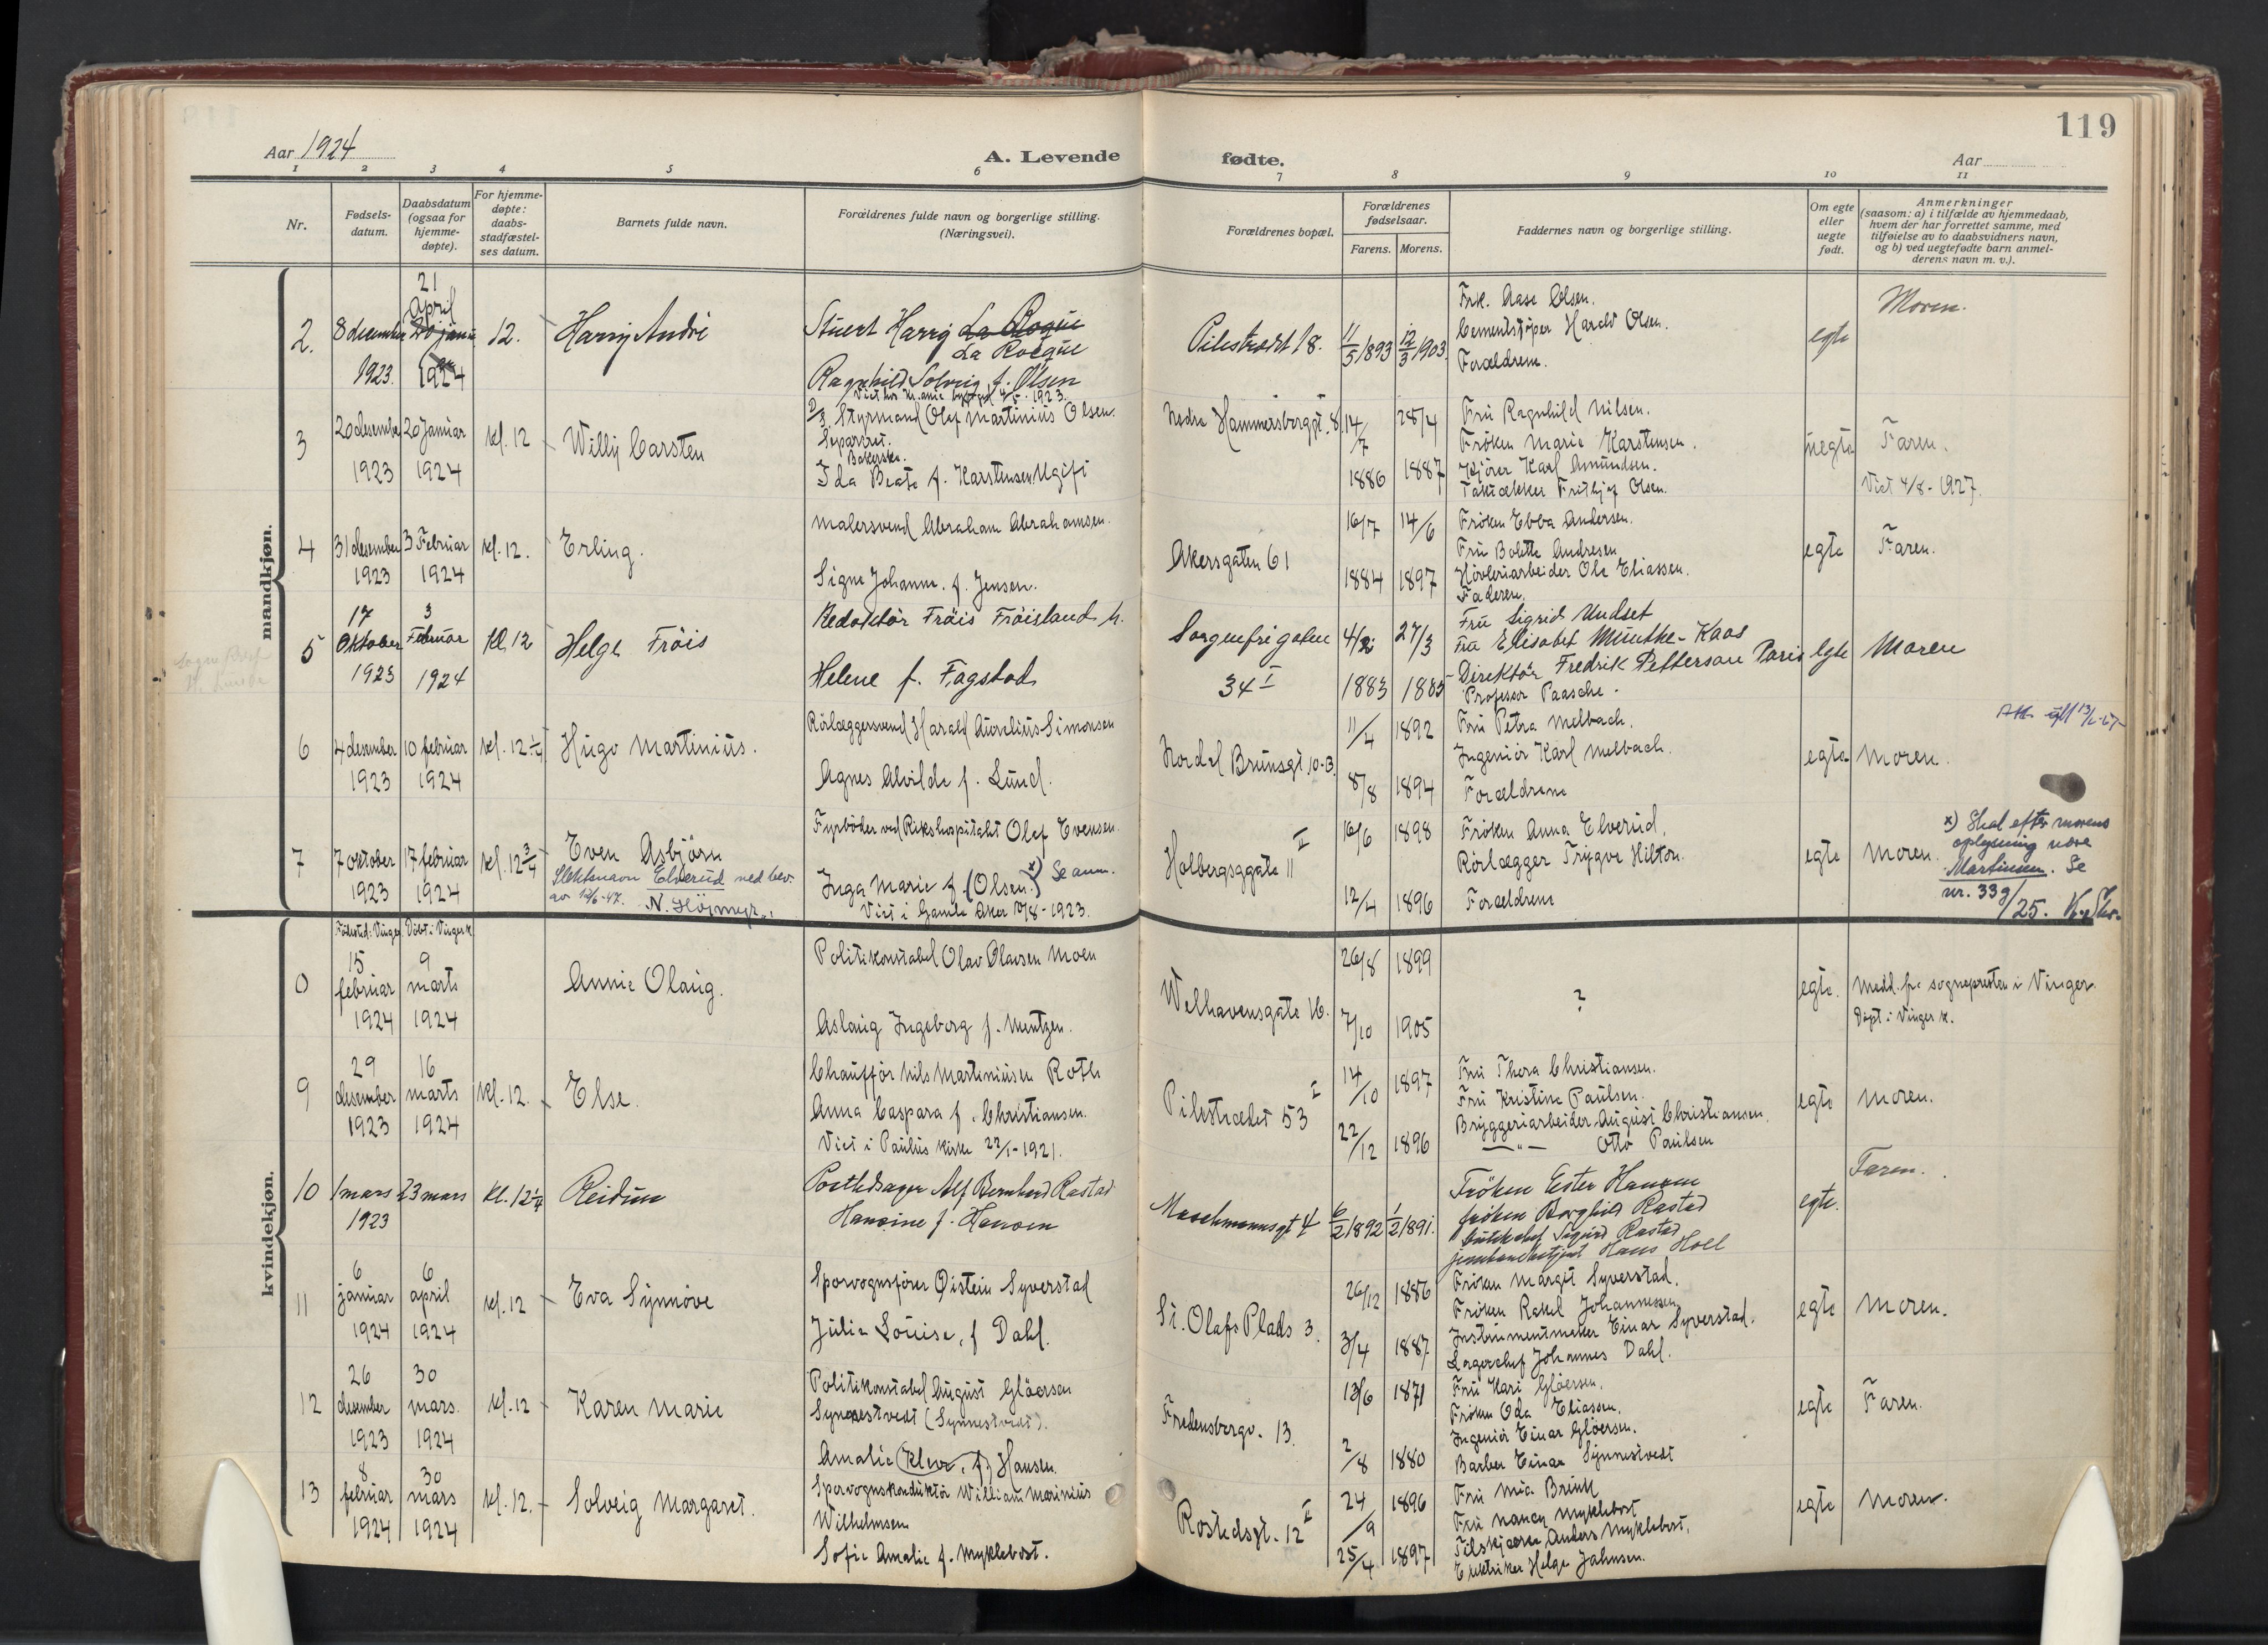 119
Aar 1924
A. Levende fødte.
Aar
1 2 3 4 5 6 7 8 9 10 11
Nr.
Fødsels-
datum.
Daabsdatum
(ogsaa for
hjemme-
døpte).
For hjemme-
døpte:
daabs-
stadfæstel-
ses datum.
Barnets fulde navn.
Forældrenes fulde navn og borgerlige stilling.
(Næringsvei).
Forældrenes bopæl.
Forældrenes
fødselsaar.
Farens. Morens.
Faddernes navn og borgerlige stilling.
Om egte
eller
uegte
født.
Anmerkninger
(saasom: a) i tilfælde av hjemmedaab,
hvem der har forrettet samme, med
tilføielse av to daabsvidners navn,
og b) ved uegtefødte barn anmel-
derens navn m. v.).
mandkjøn.
2.
8 desember
1923.
21
April
20 januar
1924
12.
Harry André
Stuert Harry La Roque
La Rocque
Ragnhild Solveig f. Olsen
Pilestrædet 18.
11/5 1893
12/3 1903.
Frk. Aase Olsen.
Cementstøper Harald Olsen.
Forældrene.
egte
Moren.
3
20 desember
1923
20 Januar
1924
kl. 12
Willy Carsten
Styrmand Olaf Martinius Olsen.
Separeret.
Ida Beate f. Karstensen Ugift
Nedre Hammersborggt. 8
14/7
1886
28/4
1887
Fru Ragnhild Nilsen.
Frøken Marie Karstensen.
Kjører Karl Amundsen.
Taktækker Frithjof Olsen.
uegte
Faren.
Viet 4/8 - 1927.
4
31 desember
1923
3 Februar
1924
kl. 12.
Erling.
Malersvend Abraham Abrahamsen.
Signe Johanne. f. Jensen.
Akersgaten 61
16/7
1884
14/6
1897
Frøken Ebba Andersen.
Fru Bolette Andresen
Høvleriarbeider Ole Eliassen.
Faderen.
egte
Faren.
5
17
Oktober
1923
3
Februar
1924
Kl. 12
Helge Fröis
Redaktör Fröis Fröisland
Helene f. Fagstad
Sorgenfrigaten
34 I
4/2
1883
27/3
1885
Fru Sigrid Undset
Fru Elisabet Münthe-Kaas
Direktör Fredrik Petterson Paris
Professor Paasche.
egte
Moren
6
4 desember
1923
10 februar
1924
kl. 12 1/4
Hugo Martinius.
Rörlæggersvend Harald Aurelius Simonsen
Agnes Alvilde f. Lund.
Nordal Brunsgt. 10-B.
11/4
1892
8/8
1894
Fru Petra Melbach.
Ingeniör Karl Melbach.
Forældrene
egte
Moren.
7
7 oktober
1923
17 februar
1924
kl. 12 3/4
Even Asbjörn
Slektsnavn Elverud ved bev.
av 12/6-47.
Fyrböder ved Rikshospitalet Olaf Evensen.
Inga Marie f. (Olsen.) x) Se anm.
Viet i Gamle Aker 19/8 - 1923.
Holbergsgate 11 II
16/6 1898
12/4 1896
Fröken Anna Elverud.
Rörlægger Trygve Hilton.
Forældrene
egte
Moren.
x) Skal efter morens
oplysning være
Martinsen. Se
nr. 339/25.
kvindekjøn.
Födested: Vinger Döbt i Vinger k.
15
februar
1924
9
marts
1924
Annie Olaug.
Politikonstabel Olav Olavsen Moen
Aslaug Ingeborg f. Mentzen.
Welhavensgate 16.
26/8 1899
7/10 1905
?
egte.
Medd. fra sognepresten i Vinger.
Döpt i Vinger k.
9
29
desember
1923
16
marts
1924
kl. 12.
Else.
Chauffør Nils Martiniusen Roth
Anna Caspara f. Christiansen.
Viet i Paulus kirke 22/1-1921.
Pilestrædet 53 I
14/10 1897
22/12 1896
Fru Thora Christiansen.
Fru Kristine Paulsen.
Bryggeriarbeider August Christiansen.
—"— Otto Paulsen
egte
Moren.
10
1 mars
1923
23 mars
Kl. 12 1/4
Reidun
Alf Bernhard Rastad
Hansine f. Hansen
6/2 1892
1/2 1891.
Fröken Ester Hansen
fröken Borghild Rastad
Sigurd Rastad
Hans Holl
egte.
Faren.
11
6
januar
1924
6
april
1924
kl. 12
Eva Synnöve
Sporvognsförer Øistein Syverstad
Julie Louise, f Dahl.
St. Olafs Plads 3.
26/12 1886
3/4 1887
Fröken Margit Syverstad.
Fröken Rakel Johannessen
Instrumentmaker Einar Syverstad.
Lagerchef Johannes Dahl.
egte
Moren.
12
26
desember
1923
30
mars.
1924
kl. 12
Karen Marie
Politikonstabel August Glöersen
Synnestvedt (Synnestvedt).
Amalie f. Hansen.
Fredensborgv. 13.
13/6 1871
2/8 1880
Fru Kari Glöersen.
Fröken Oda Eliassen.
Ingeniör Einar Glöersen.
Barber Einar Synnestvedt
egte
Faren.
13
8
februar
1924
30
mars
1924
kl. 12.
Solveig Margaret.
Sporvognskonduktör William Marinius
Wilhelmsen
Sofie Amalie f. Myklebost.
Rostedsgt. 12 II
24/9 1896
25/4 1897
Fru Mia Brink
Fru Nancy Myklebost
Anders Myklebost.
Elektriker Helge Jahnsen.
egte
Moren.